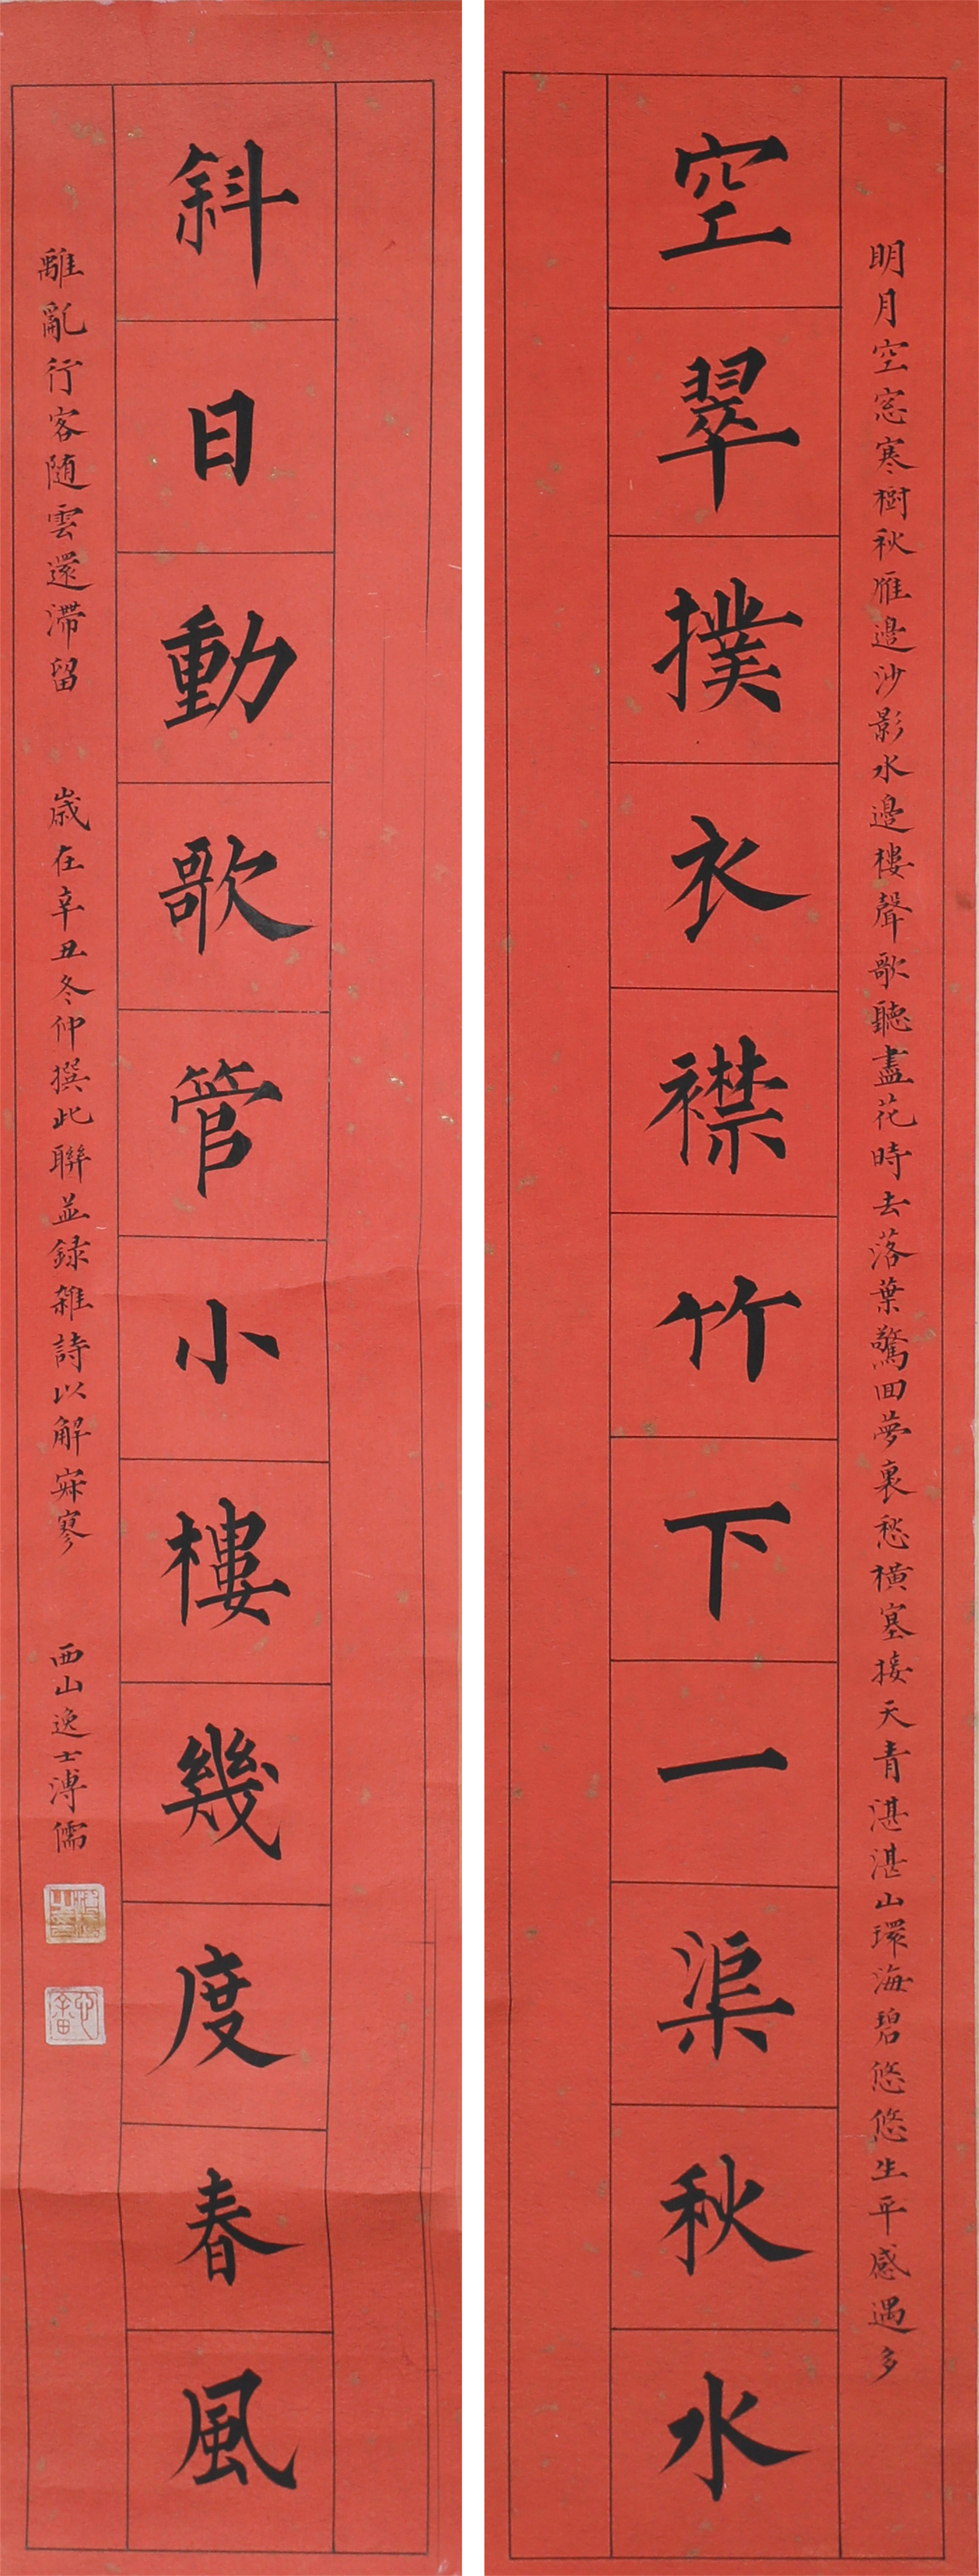 明月空窓寒樹秋雁邉沙影水邉樓聲歌聽盡花時去落葉驚回夢裏愁橫塞接天青湛湛山環海碧悠悠生平感遇多
空翠撲衣襟竹下一渠秋水
斜日動歌管小樓幾度春風
離亂行客随雲還滯留 歲在辛丑冬仲撰此聯並録雜詩以解寂寥 西山逸士溥儒